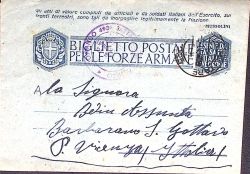 Gli atti di valore compiuti da ufficiali e da soldati italiani dell'Esercito, sui
fronti terrestri, sono tali da inorgoglire legittimamente la Nazione.
MUSSOLINI
BIGLIETTO POSTALE
PER LE FORZE ARMATE
Alla Signora
Assunta
Barbarano S. Gottardo
P. Vicenza (Italia)